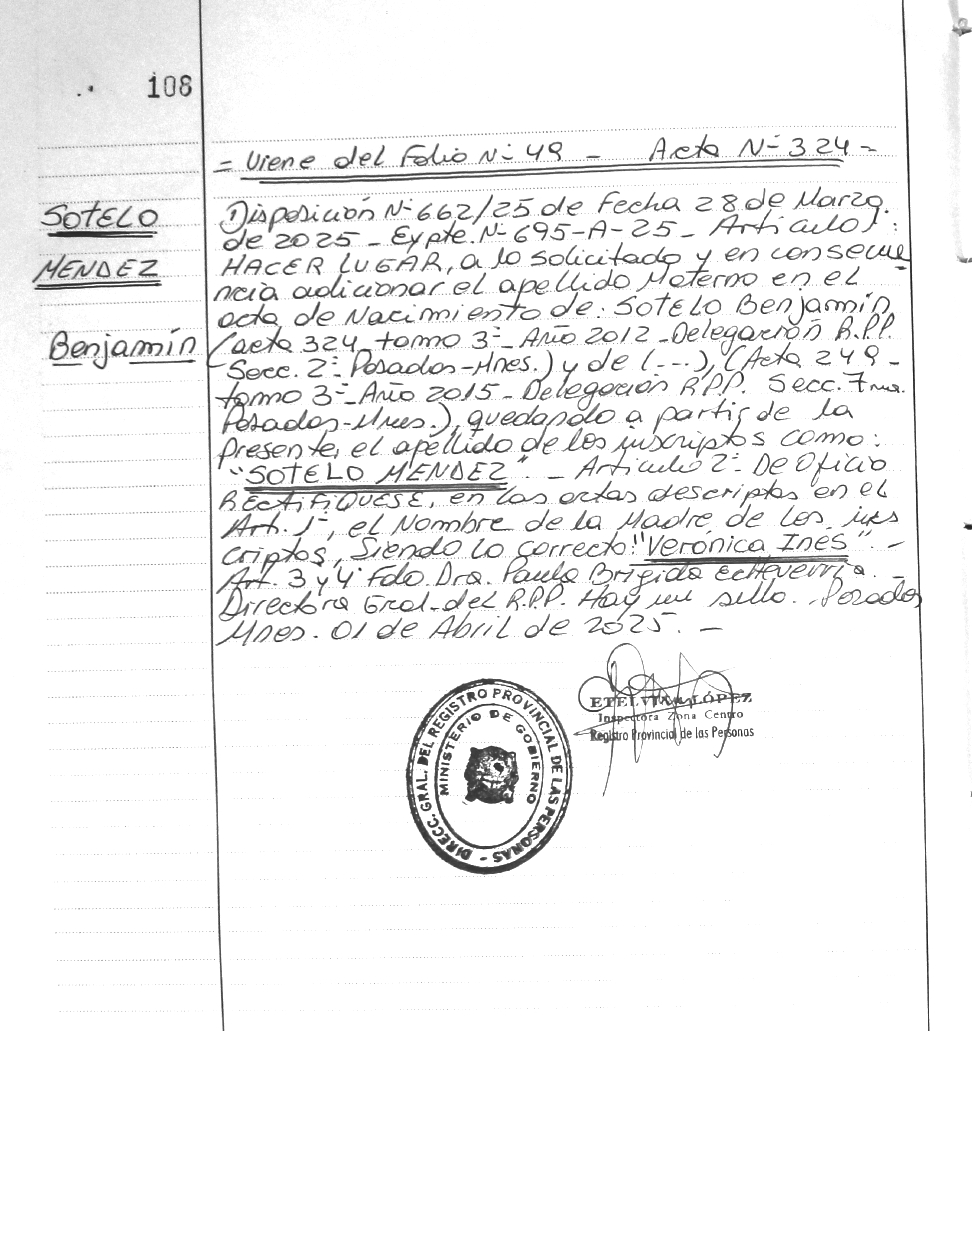 108
= Viene del Folio Nº 49 - Acta Nº 324 -
SOTELO
MENDEZ
Benjamín
Disposición Nº 662/25 de Fecha 28 de Marzo
de 2025 - Expte. Nº 695-A-25 - Artículo 1º:
HACER LUGAR, a lo solicitado y en consecue
ncia adicionar el apellido Materno en el
acta de Nacimiento de: SOTELO Benjamín,
(acta 324 tomo 3º - Año 2012 - Delegación R.P.P.
Secc. 2º Posadas-Mnes.) y de (---), (Acta 249 -
tomo 3º - Año 2015 - Delegación R.P.P. Secc. 7ma.
Posadas-Mnes.), quedando a partir de la
Presente, el apellido de los inscriptos como:
"SOTELO MENDEZ" - Artículo 2º: De Oficio
RECTIFIQUESE, en las actas descriptas en el
Art. 1º, el Nombre de la Madre de los ins
criptos, Siendo lo correcto: "Verónica Ines". -
Art. 3 y 4 Fdo. Dra. Paula Brigida Echeverria. -
Directora Gral. del R.P.P. Hay un sello. Posadas
Mnes. 01 de Abril de 2025. -
ETELVINA LÓPEZ
Inspectora Zona Centro
Registro Provincial de las Personas
DIRECC. GRAL. DEL REGISTRO PROVINCIAL DE LAS PERSONAS -
MINISTERIO DE GOBIERNO